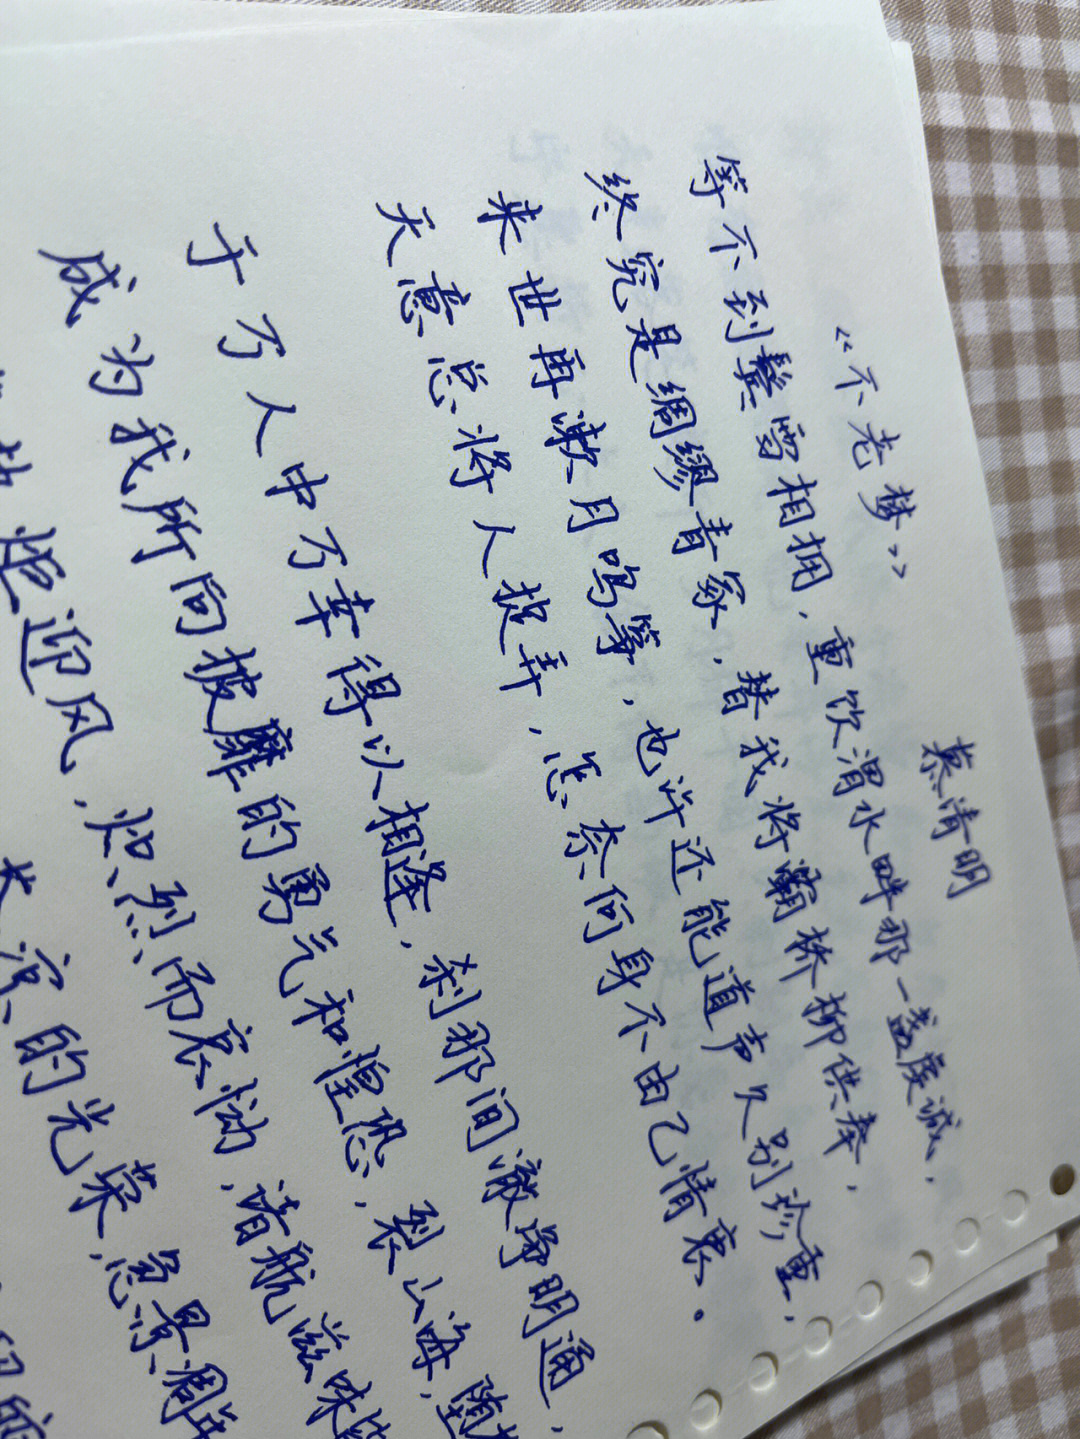 慕清明
《不老梦》
等不到鬓雪相拥，重饮渭水畔那一盏虔诚，
终究是绸缪青冢，替我将灞桥柳供奉，
来世再漱月鸣筝，也许还能道声久别珍重，
天意总将人捉弄，怎奈何身不由己情衷。
于万人中万幸得以相逢，刹那间澈净明通，
成为我所向披靡的勇气和惶恐，裂山海，堕
炬迎风，炽烈而哀恸，诸般滋味皆
滚的光荣，忽景凋年